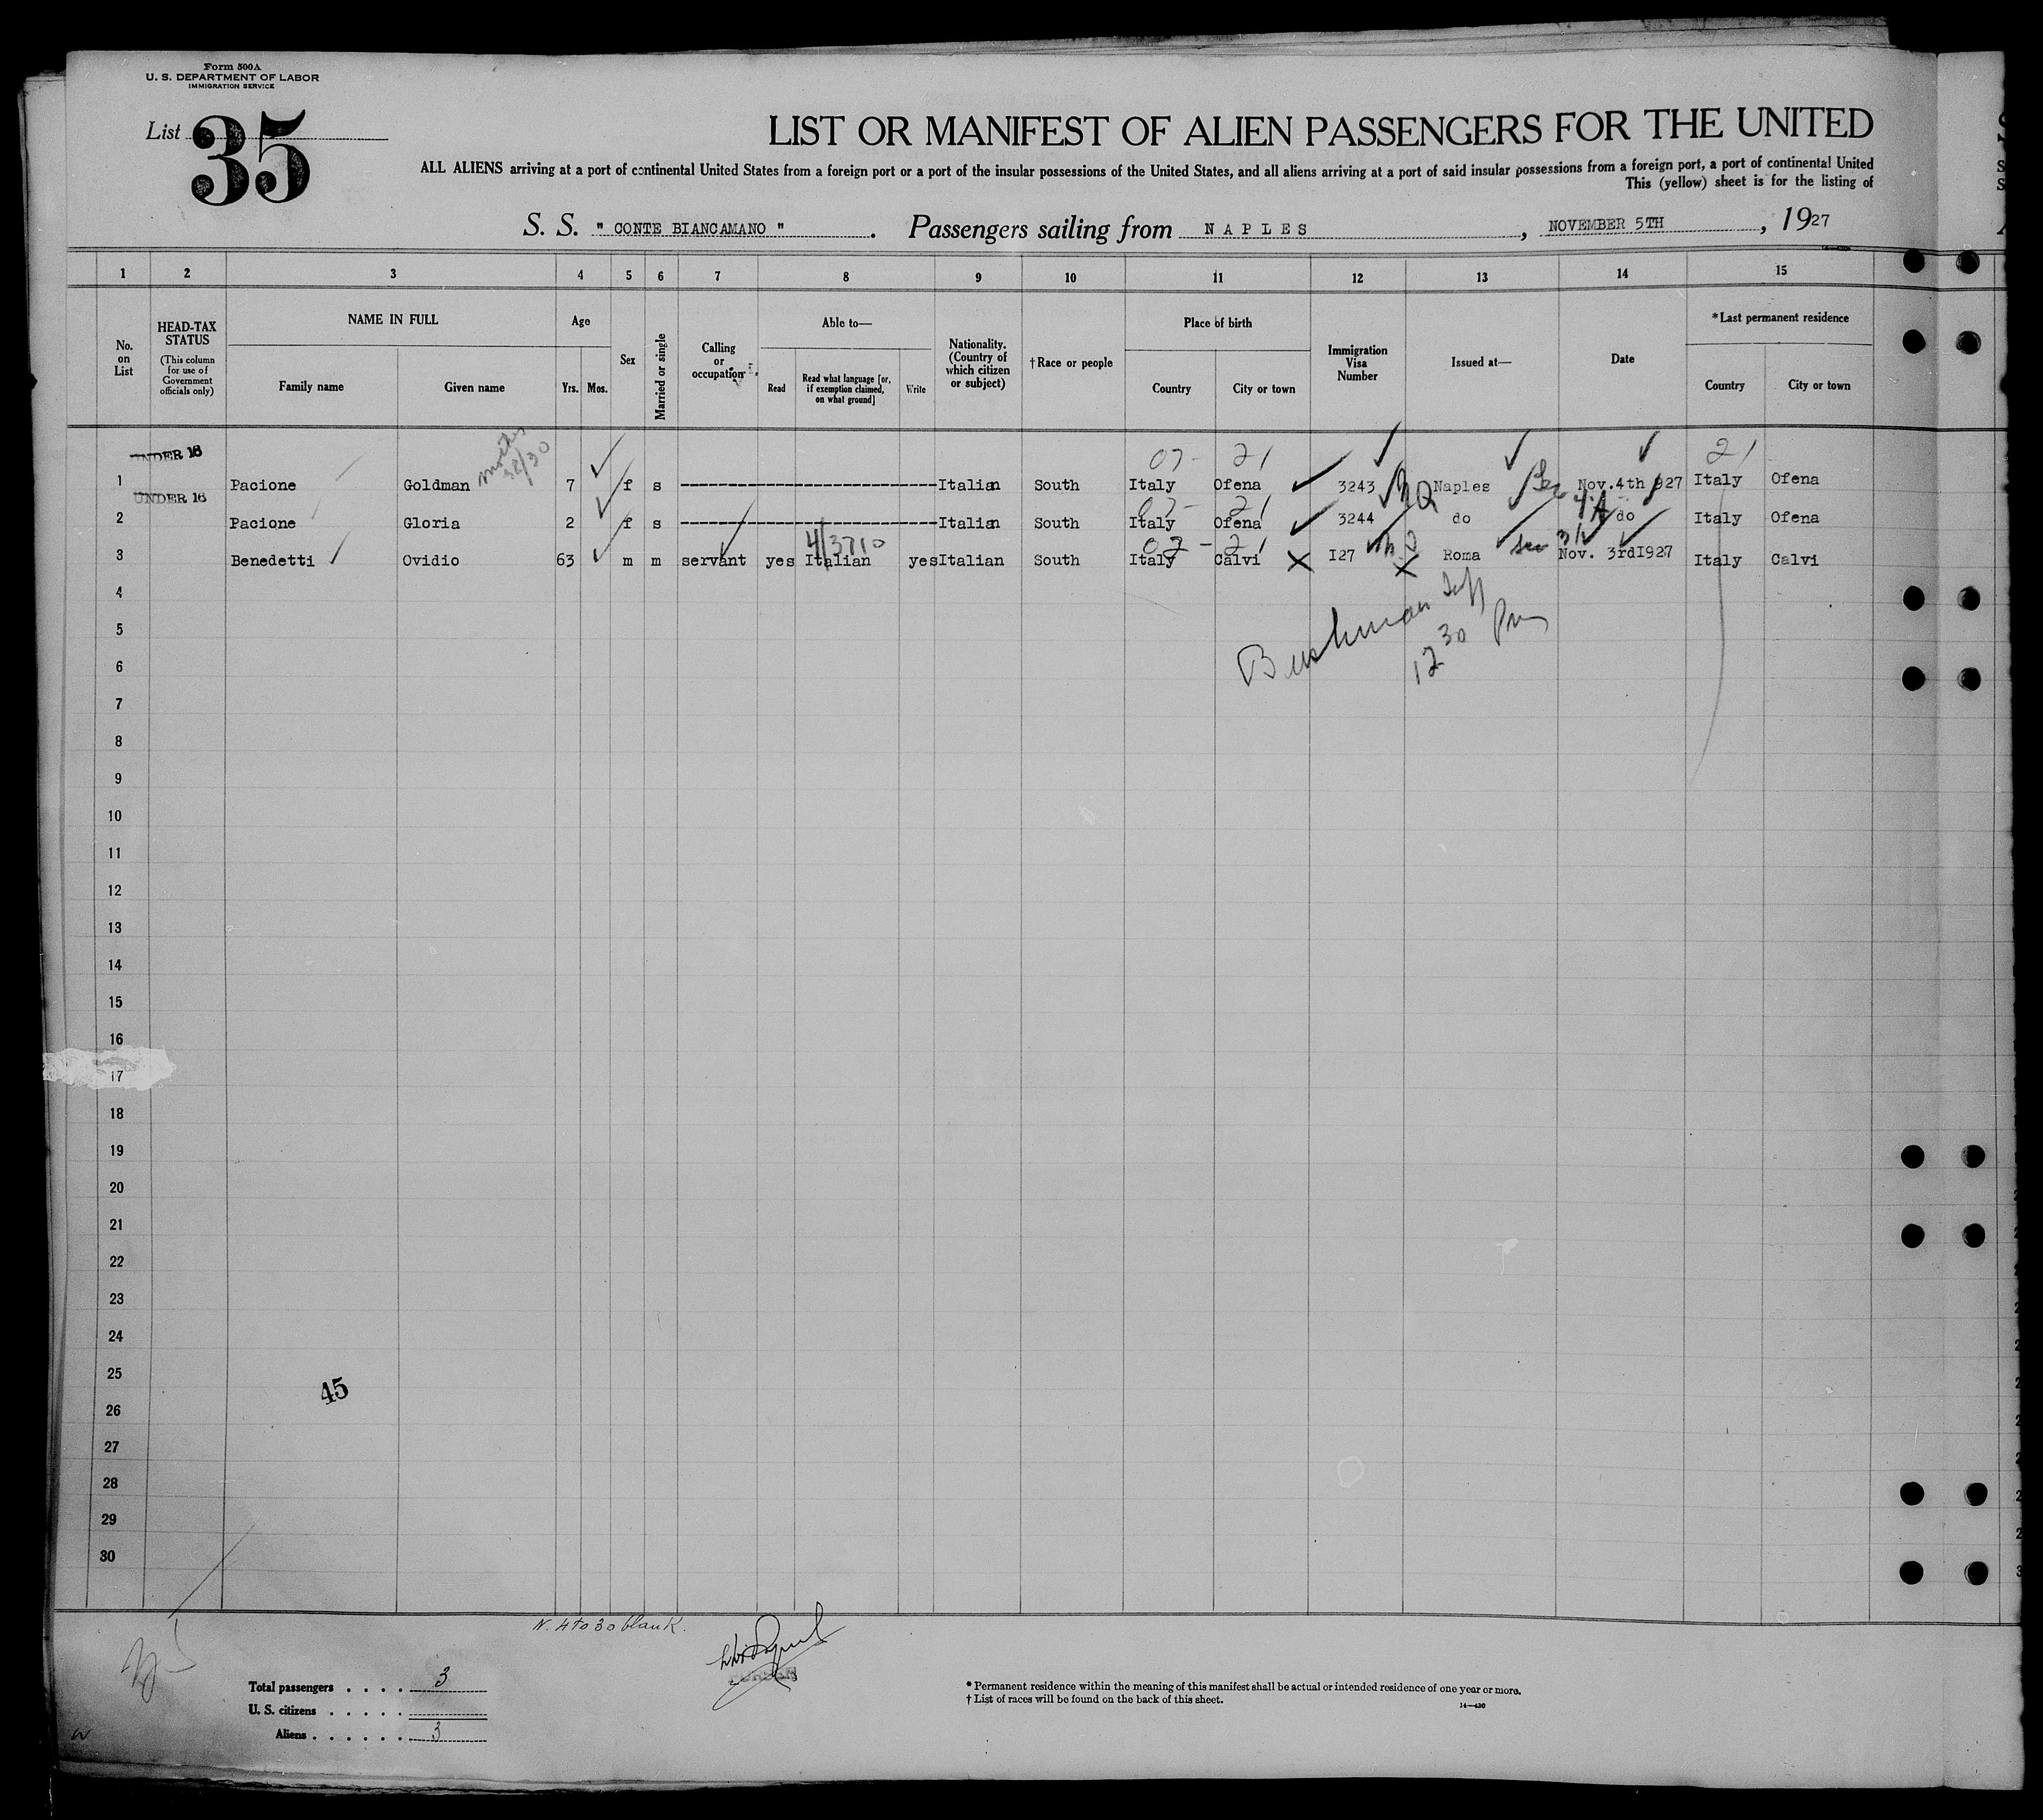 Form 500A
U. S. DEPARTMENT OF LABOR
IMMIGRATION SERVICE
List 35
LIST OR MANIFEST OF ALIEN PASSENGERS FOR THE UNITED
ALL ALIENS arriving at a port of continental United States from a foreign port or a port of the insular possessions of the United States, and all aliens arriving at a port of said insular possessions from a foreign port, a port of continental United
This (yellow) sheet is for the listing of
S. S. " CONTE BIANCAMANO ". Passengers sailing from NAPLES, NOVEMBER 5TH, 1927
1 2 3 4 5 6 7 8 9 10 11 12 13 14 15
No. on List
HEAD-TAX STATUS
(This column for use of Government officials only)
NAME IN FULL
Family name Given name
Age
Yrs. Mos.
Sex
Married or single
Calling or occupation
Able to—
Read
Read what language [or, if exemption claimed, on what ground]
Write
Nationality. (Country of which citizen or subject)
†Race or people
Place of birth
Country City or town
Immigration Visa Number
Issued at—
Date
*Last permanent residence
Country City or town
07- 21 21
UNDER 16
1 Pacione Goldman 7 f s Italian South Italy Ofena 3243 Naples Nov.4th 927 Italy Ofena
UNDER 16
2 Pacione Gloria 2 f s Italian South Italy Ofena 3244 do do Italy Ofena
4/3710 02 - 21
3 Benedetti Ovidio 63 m m servant yes Italian yes Italian South Italy Calvi I27 Roma Nov. 3rdI927 Italy Calvi
4
Bushman
12 30 Pm
5
6
7
8
9
10
11
12
13
14
15
16
17
18
19
20
21
22
23
24
25
45
26
27
28
29
30
N. 4 to 30 blank.
PURSER
Total passengers . . . . 3
U. S. citizens . . . . .
Aliens . . . . . . 3
* Permanent residence within the meaning of this manifest shall be actual or intended residence of one year or more.
† List of races will be found on the back of this sheet.
14—430